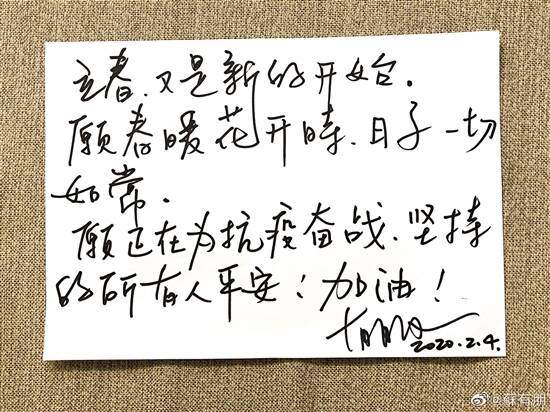 立春、又是新的开始.
愿春暖花开時、日子一切
如常.
愿正在为抗疫奋战、坚持
的所有人平安！加油！
2020.2.4.
@蘇有朋